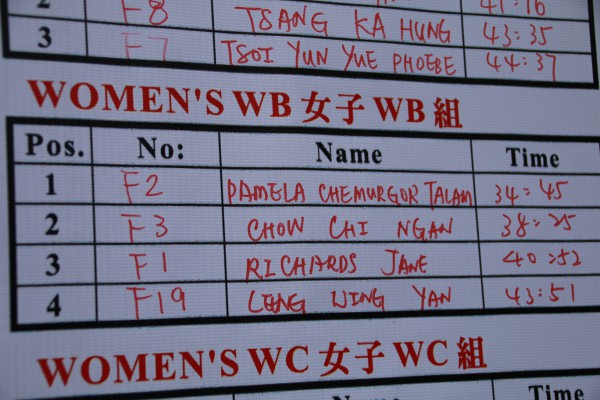 2 F8 TSANG KA HUNG 43:35
3 F7 TSOI YUN YUE PHOEBE 44:37
WOMEN'S WB 女子 WB 組
Pos. No: Name Time
1 F2 PAMELA CHEMURGOR TALAM 34:45
2 F3 CHOW CHI NGAN 38:25
3 F1 RICHARDS JANE 40:52
4 F19 LEUNG WING YAN 43:51
WOMEN'S WC 女子 WC 組
Name Time